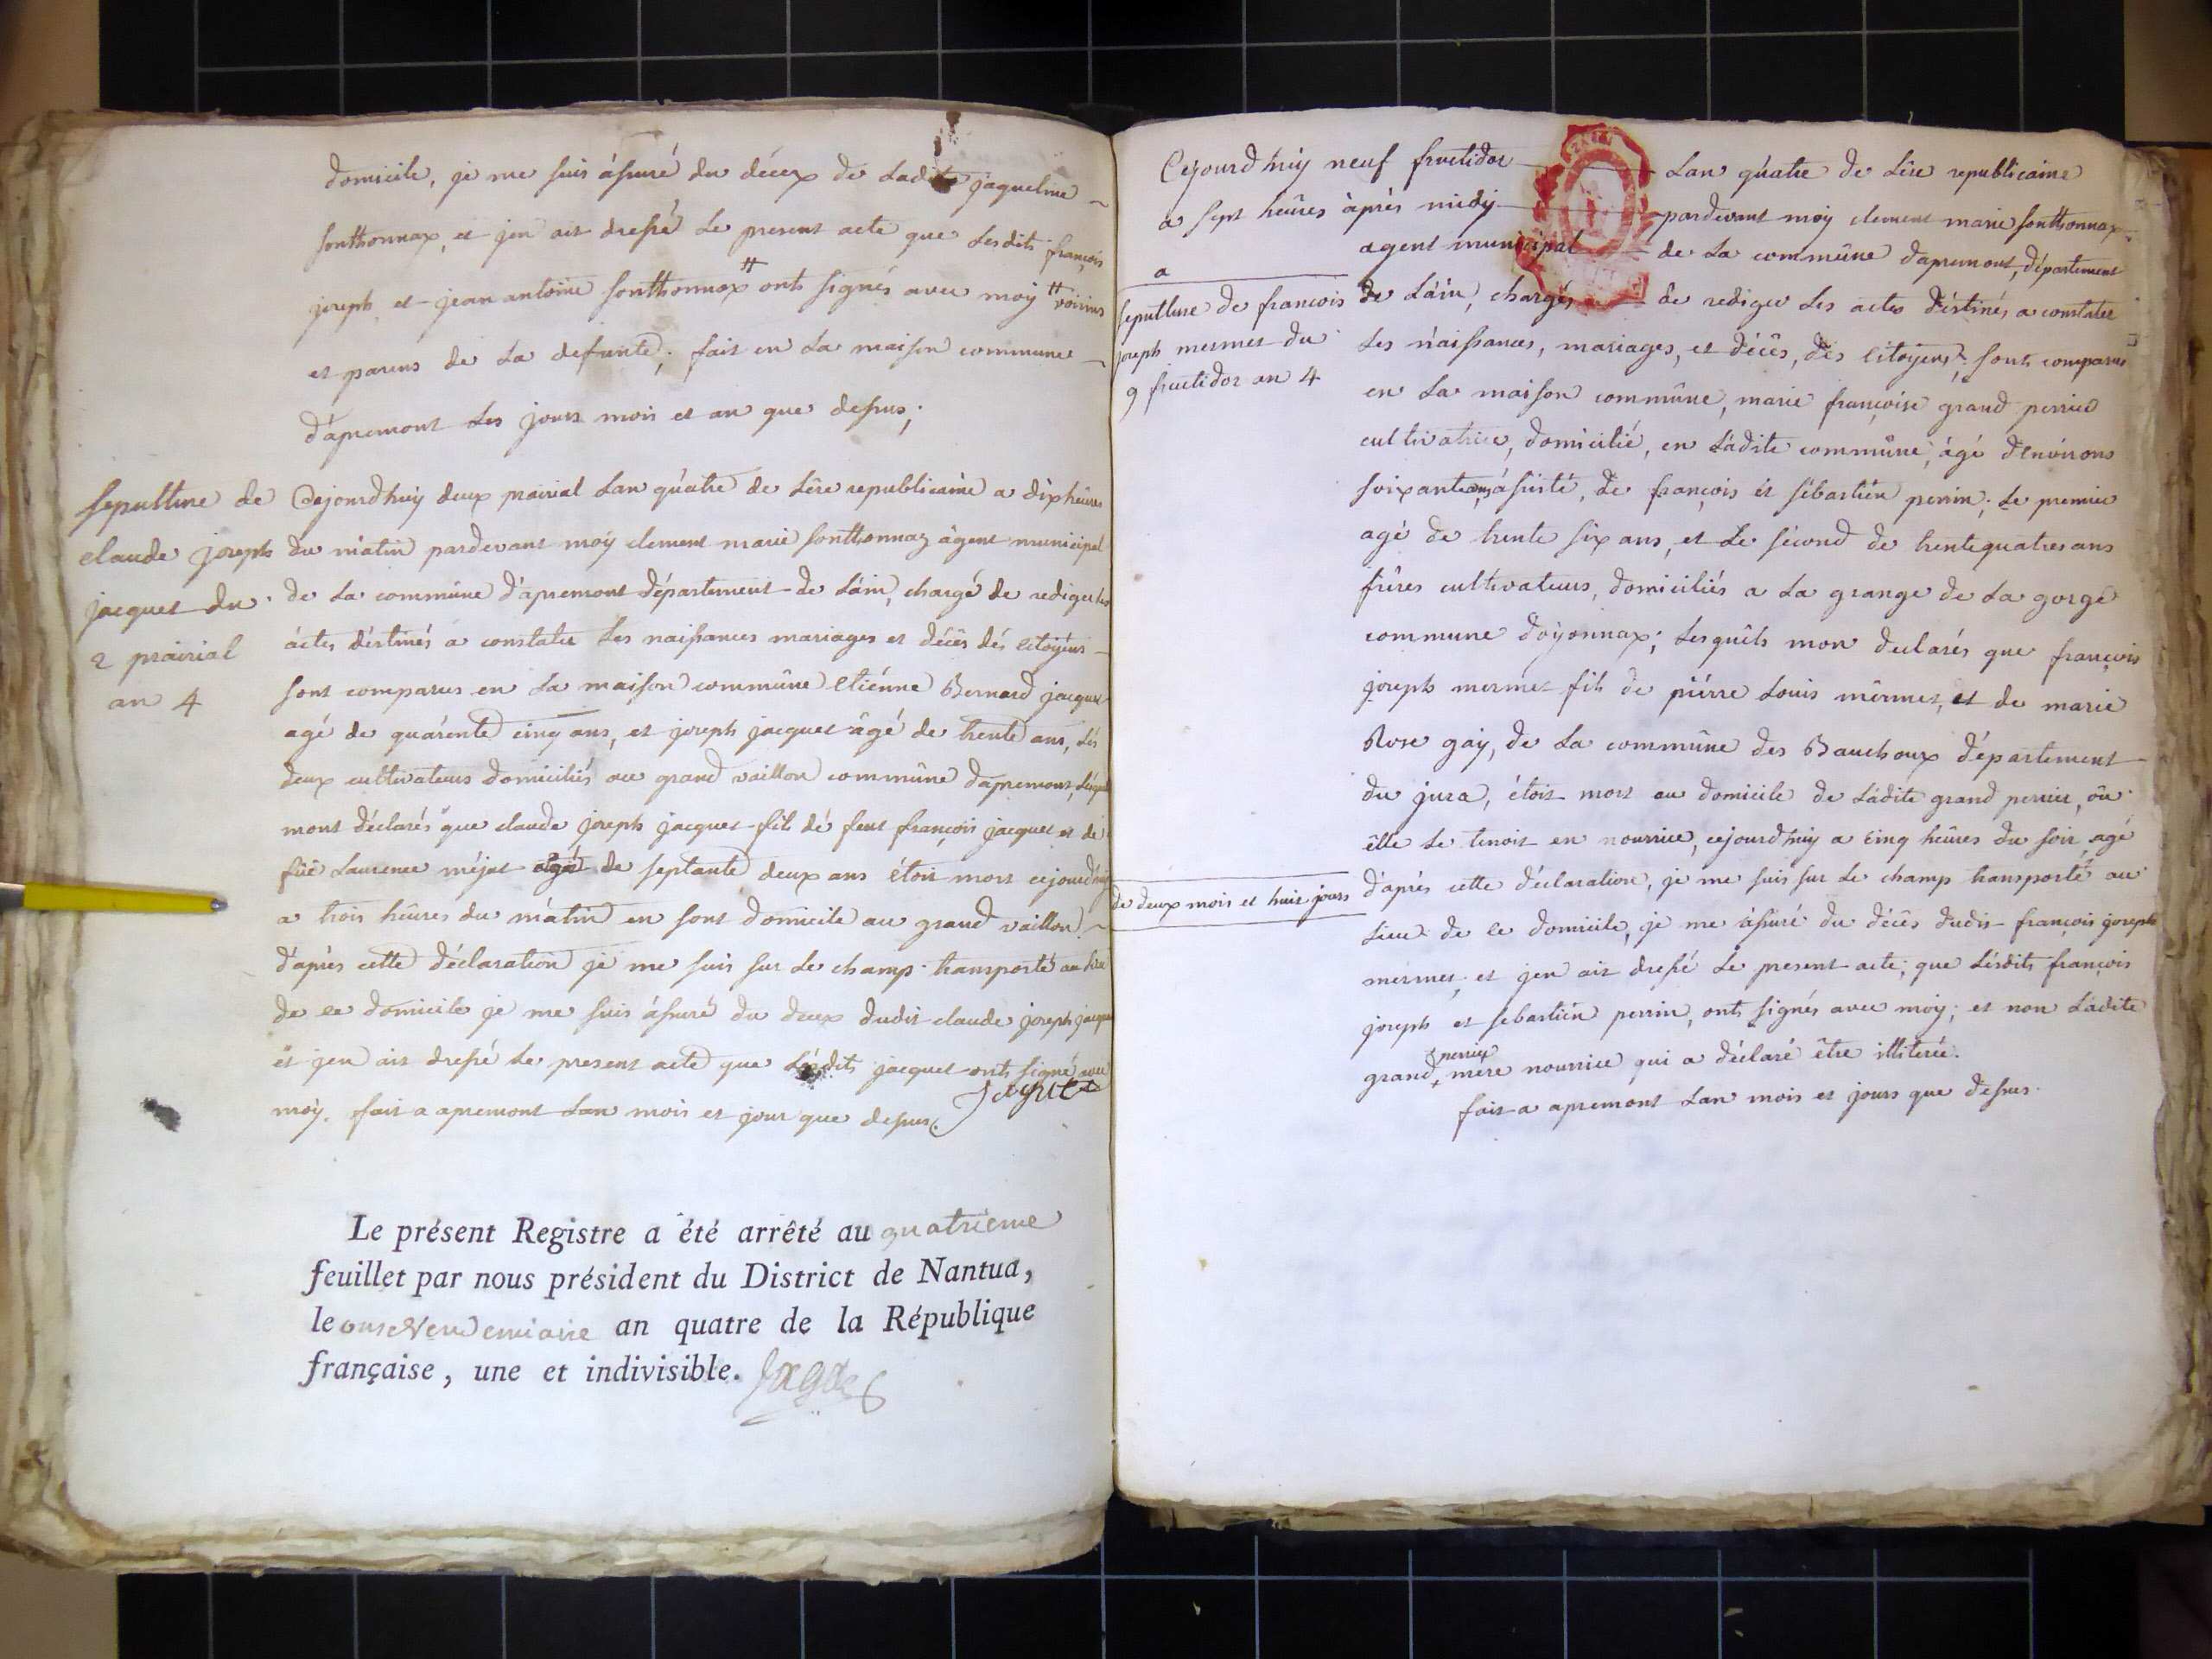 domicile, je me suis àsuré du décex de Ladite jaqueline
sonthonnax, et jen ait dressé Le present acte que Lesdits françois
joseph et jean antoine sonthonnax # ont signés avec moy # voisins
et parens de La defunte; fait en La maison commune
d'apremont Les jours mois et an que dessus;
sepulture de
claude joseph
jacquet du
2 prairial
an 4
Cejourd'huy deux prairial Lan quatre de Lère republicaine a dix heures
du matin pardevant moy clement marie sonthonnax àgent municipal
de La commûne d'apremont département de Làin, chargé de rediger les
àctes déstinés a constater Les naissances mariages et décês dés citoyéns
sont comparus en La maison commûne Etiénne Bernard jacquet
agé de quarénte cinq ans, et joseph jacquet âgé de trente ans, Lés
deux cultivateurs domiciliés au grand vaillon commûne dapremont, Lésquels
mont déclarés que claude joseph jacquet fils dé feut françois jacquet et de
fûë Laurence méjat agé de septante deux ans étoit mort cejourd'huy
a trois heures du matin en sont domicile au grand vaillon
d'après cette déclaration je me suis sur Le champ transporté au lieu
de ce domicile je me suis àsuré du decex dudit claude joseph jacquet
et jen ait dressé Le present acte que Lésdits jacquet ont signé avec
moy. fait a apremont Lan mois et jour que dessus. Jaquet
Le présent Registre a été arrêté au quatrieme
feuillet par nous président du District de Nantua,
le onze Vendemiaire an quatre de la République
française, une et indivisible.
Cejourd'huy neuf fructidor Lan quatre de Lère republicaine
a sept heûres àprès midy pardevant moy clement marie sonthonnax
agent municipal de La commûne dapremont, département
a
sepulture de francois
joseph mermet du
9 fructidor an 4
de Làin, chargés de rediger Les actes déstinés a constater
Les naissances, mariages, et décês, dés citoyens, sont comparus
en La maison commûne, marie françoise grand perrier
cultivatrice, domicilié, en Ladite commûne, âgé d'environs
soixante ans, àsisté, de françois et sébastién perrin; Le premier
agé de trente six ans, et Le sécond de trente quatres ans
frères cultivateurs, domiciliés a La grange de La gorge
commune d'oyonnax; Lesquêls mon declarés que françois
joseph mermet fils de piérre Louis mermet, et de marie
Rose gay, de La commûne des Bauchoux département
du jura, étoit mort au domicile de Ladite grand perrier, où
êlle Le tenoit en nourrice, cejourd'huy a cinq heûres du soir, agé
de deux mois et huit jours
d'après cette déclaration, je me suis sur Le champ transporté au
Lieu de ce domicile, je me àsuré du décês dudit françois joseph
mermet, et jen ait dressé Le present acte; que Lésdits françois
joseph et sebastién perrin, ont signés avec moy; et non Ladite
perrier
grand mère nourrice qui a déclaré être illiterée.
fait a apremont Lan mois et jours que dessus.